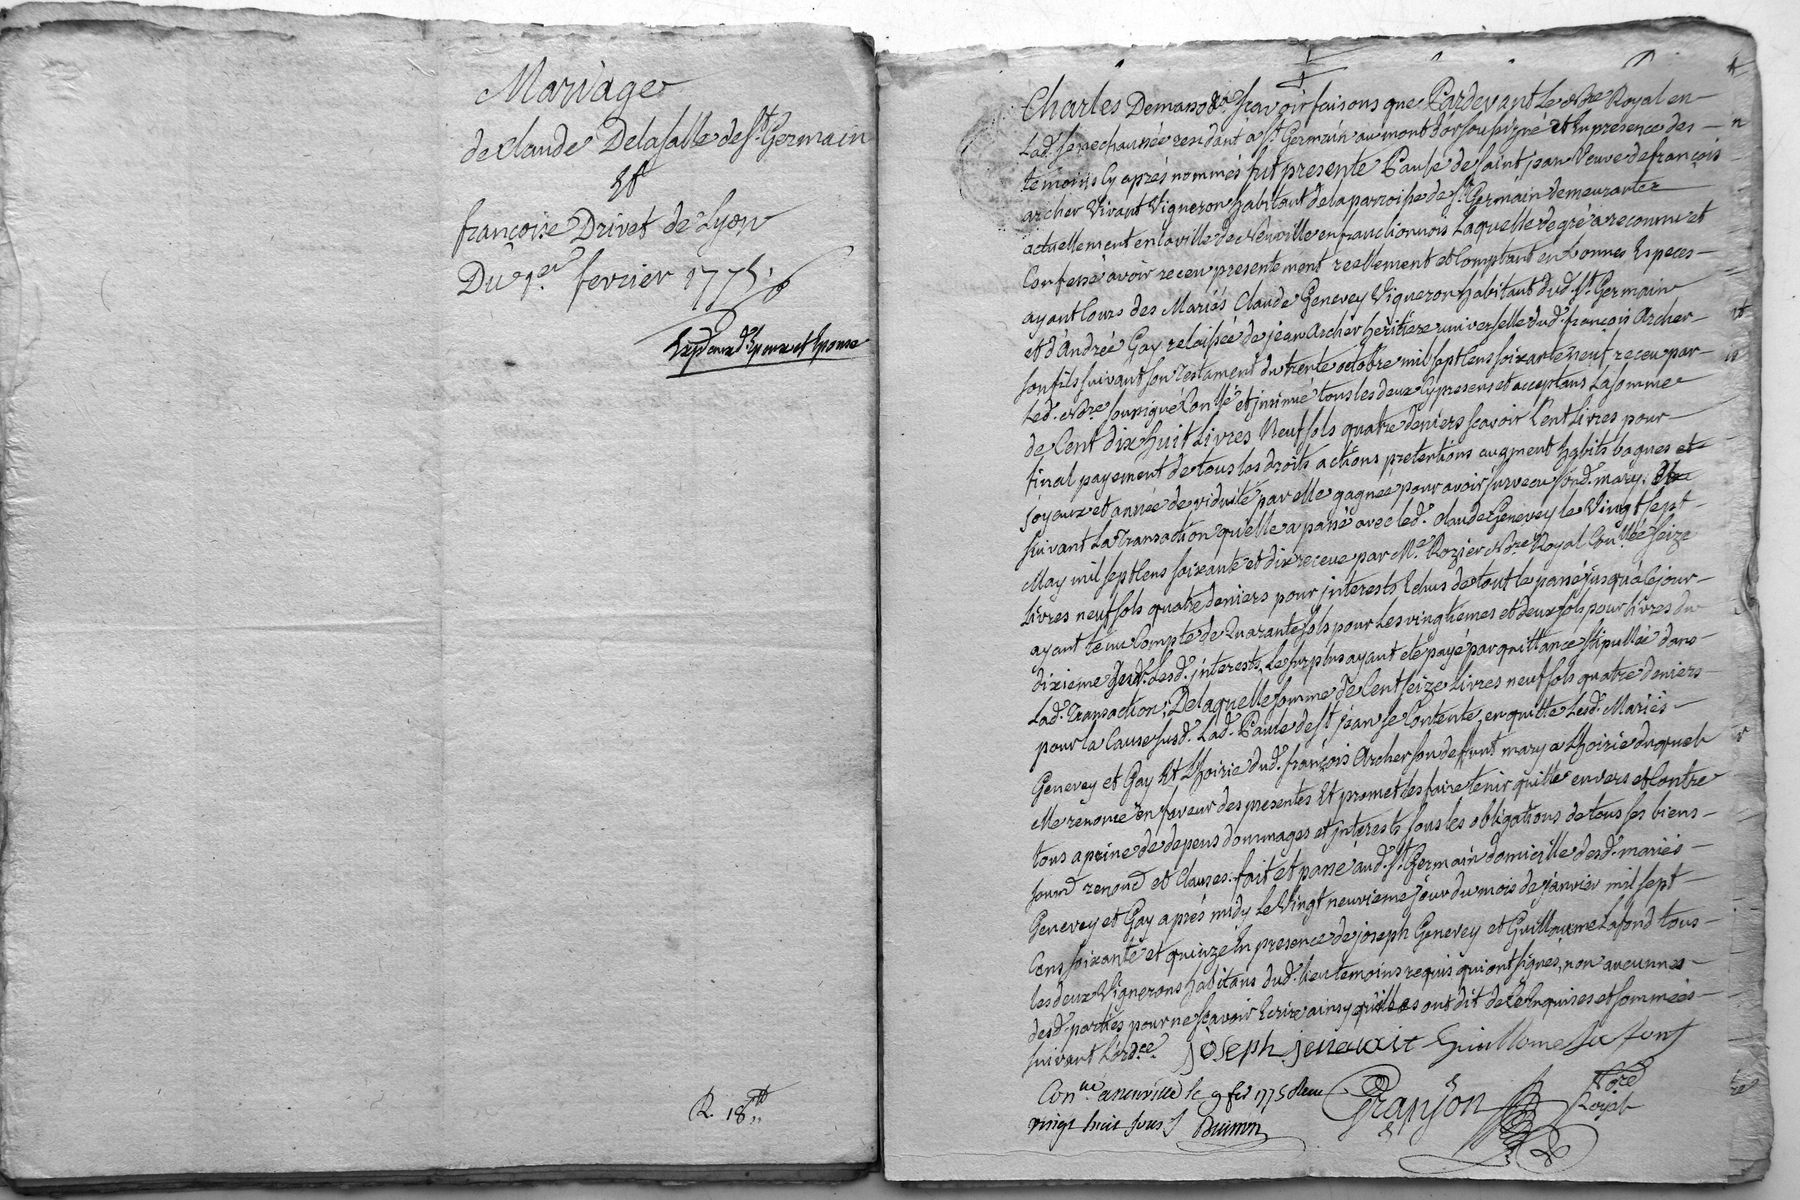 Mariage
de claude Delasalle de St. Germain
Et
francoise Drivet de Lyon
Du 1er. fevrier 1775.
Expd. aux d. Epoux et Epouse
R. 18
Charles Demaso scavoir faisons que Pardevant Le Nore Royal en
Lad. senechaussée residant a St. Germain au mont d'or soussigné et En presence des
temoins cy aprés nommés fut presente Paule de Saint jean Veuve de françois
archer Vivant Vigneron habitant de la parroisse de St. Germain demeurante
actuellement en la ville de Neuville en franclionnois Laquelle de gré a reconnu et
Confessé avoir receu presentement reellement et Comptant en bonnes Especes
ayant Cours des Mariés Claude Genevey Vigneron habitant dud. St. Germain
et d'Andrée Gay relaissée de jean Archer heritiere universelle dud. françois Archer
son fils suivant son testament du trente octobre mil sept Cens soixante neuf receu par
Led. Nore soussigné Conllé et insinué tous les deux cy presens et acceptans La somme
de Cent dix huit Livres Neuf sols quatre deniers scavoir Cent Livres pour
final payement de tous les droits actions pretentions augment habits bagues et
joyaux et année de viduité par elle gagnée pour avoir survecu sond. mary,
suivant La transaction qu'elle a passé avec led. Claude Genevey le Vingt sept
May mil sept Cens soixante et dix receue par Me. Rozier Nore Royal Conllée seize
Livres neuf sols quatre deniers pour interests Echus de tout le passé jusqu'a Ce jour
ayant tenu Compte de Quarante sols pour Les vingtiemes et deux sols pour livres du
dixieme desd. interests, Le surplus ayant eté payé par quittance stipullée dans
Lad. transaction; De laquelle somme de Cent seize Livres neuf sols quatre deniers
pour la Cause susd. Lad. Paule de St. jean se Contente, en quitte Lesd. Mariés
Genevey et Gay Et L'hoirie dud. françois Archer son deffunt mary a L'hoirie duquel
elle renonce en faveur des presentes Et promet les faire tenir quitte envers et Contre
tous a peine de depens dommages et interests sous les obligations de tous ses biens
soumd. renond. et Clauses. fait et passé aud. St. Germain domicille desd. mariés
Genevey et Gay aprés midy Le Vingt neuvieme jour du mois de janvier mil sept
Cens soixante et quinze En presence de joseph Genevey et Guillaume Lafond tous
les deux Vignerons habitans dud. lieu temoins requis qui ont signés, non aucunnes
desd. parties pour ne scavoir Ecrire ainsy qu'elles ont dit de ce Enquises et sommées
suivant L'ordce.
joseph jenevait Guillome La font
Conlle a neuville le 9 fer 1775 Reçu
vingt huit sous
Granjon Nore Royal